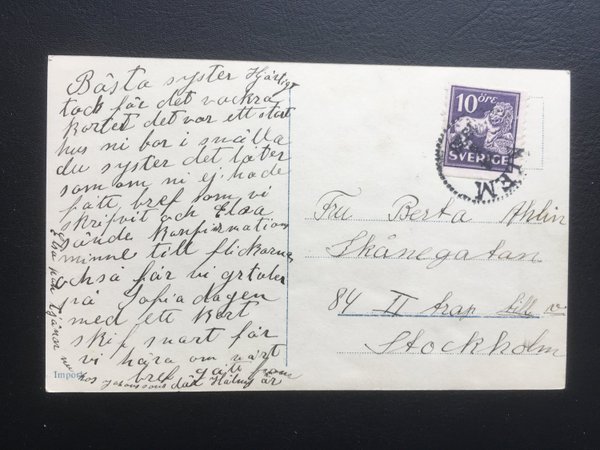 Bästa syster Hjärtligt
tack för det vackra
kortet det var ett stort
hus ni bor i snälla
du syster det låter
som om ni ej hade
fått bref som vi
skrifvit och Elsa
sände konfirmation
minne till flickorna
också får vi gratuler
på Sofia dagen
med ett kort
skif snart får
vi höra om vårt
bref gått fram
Elsa han tjänar nu
hos där Holmf är
Import
10 ÖRE
SVERIGE
Fru Berta Ahlin
Skånegatan
84 II trap till v
Stockholm